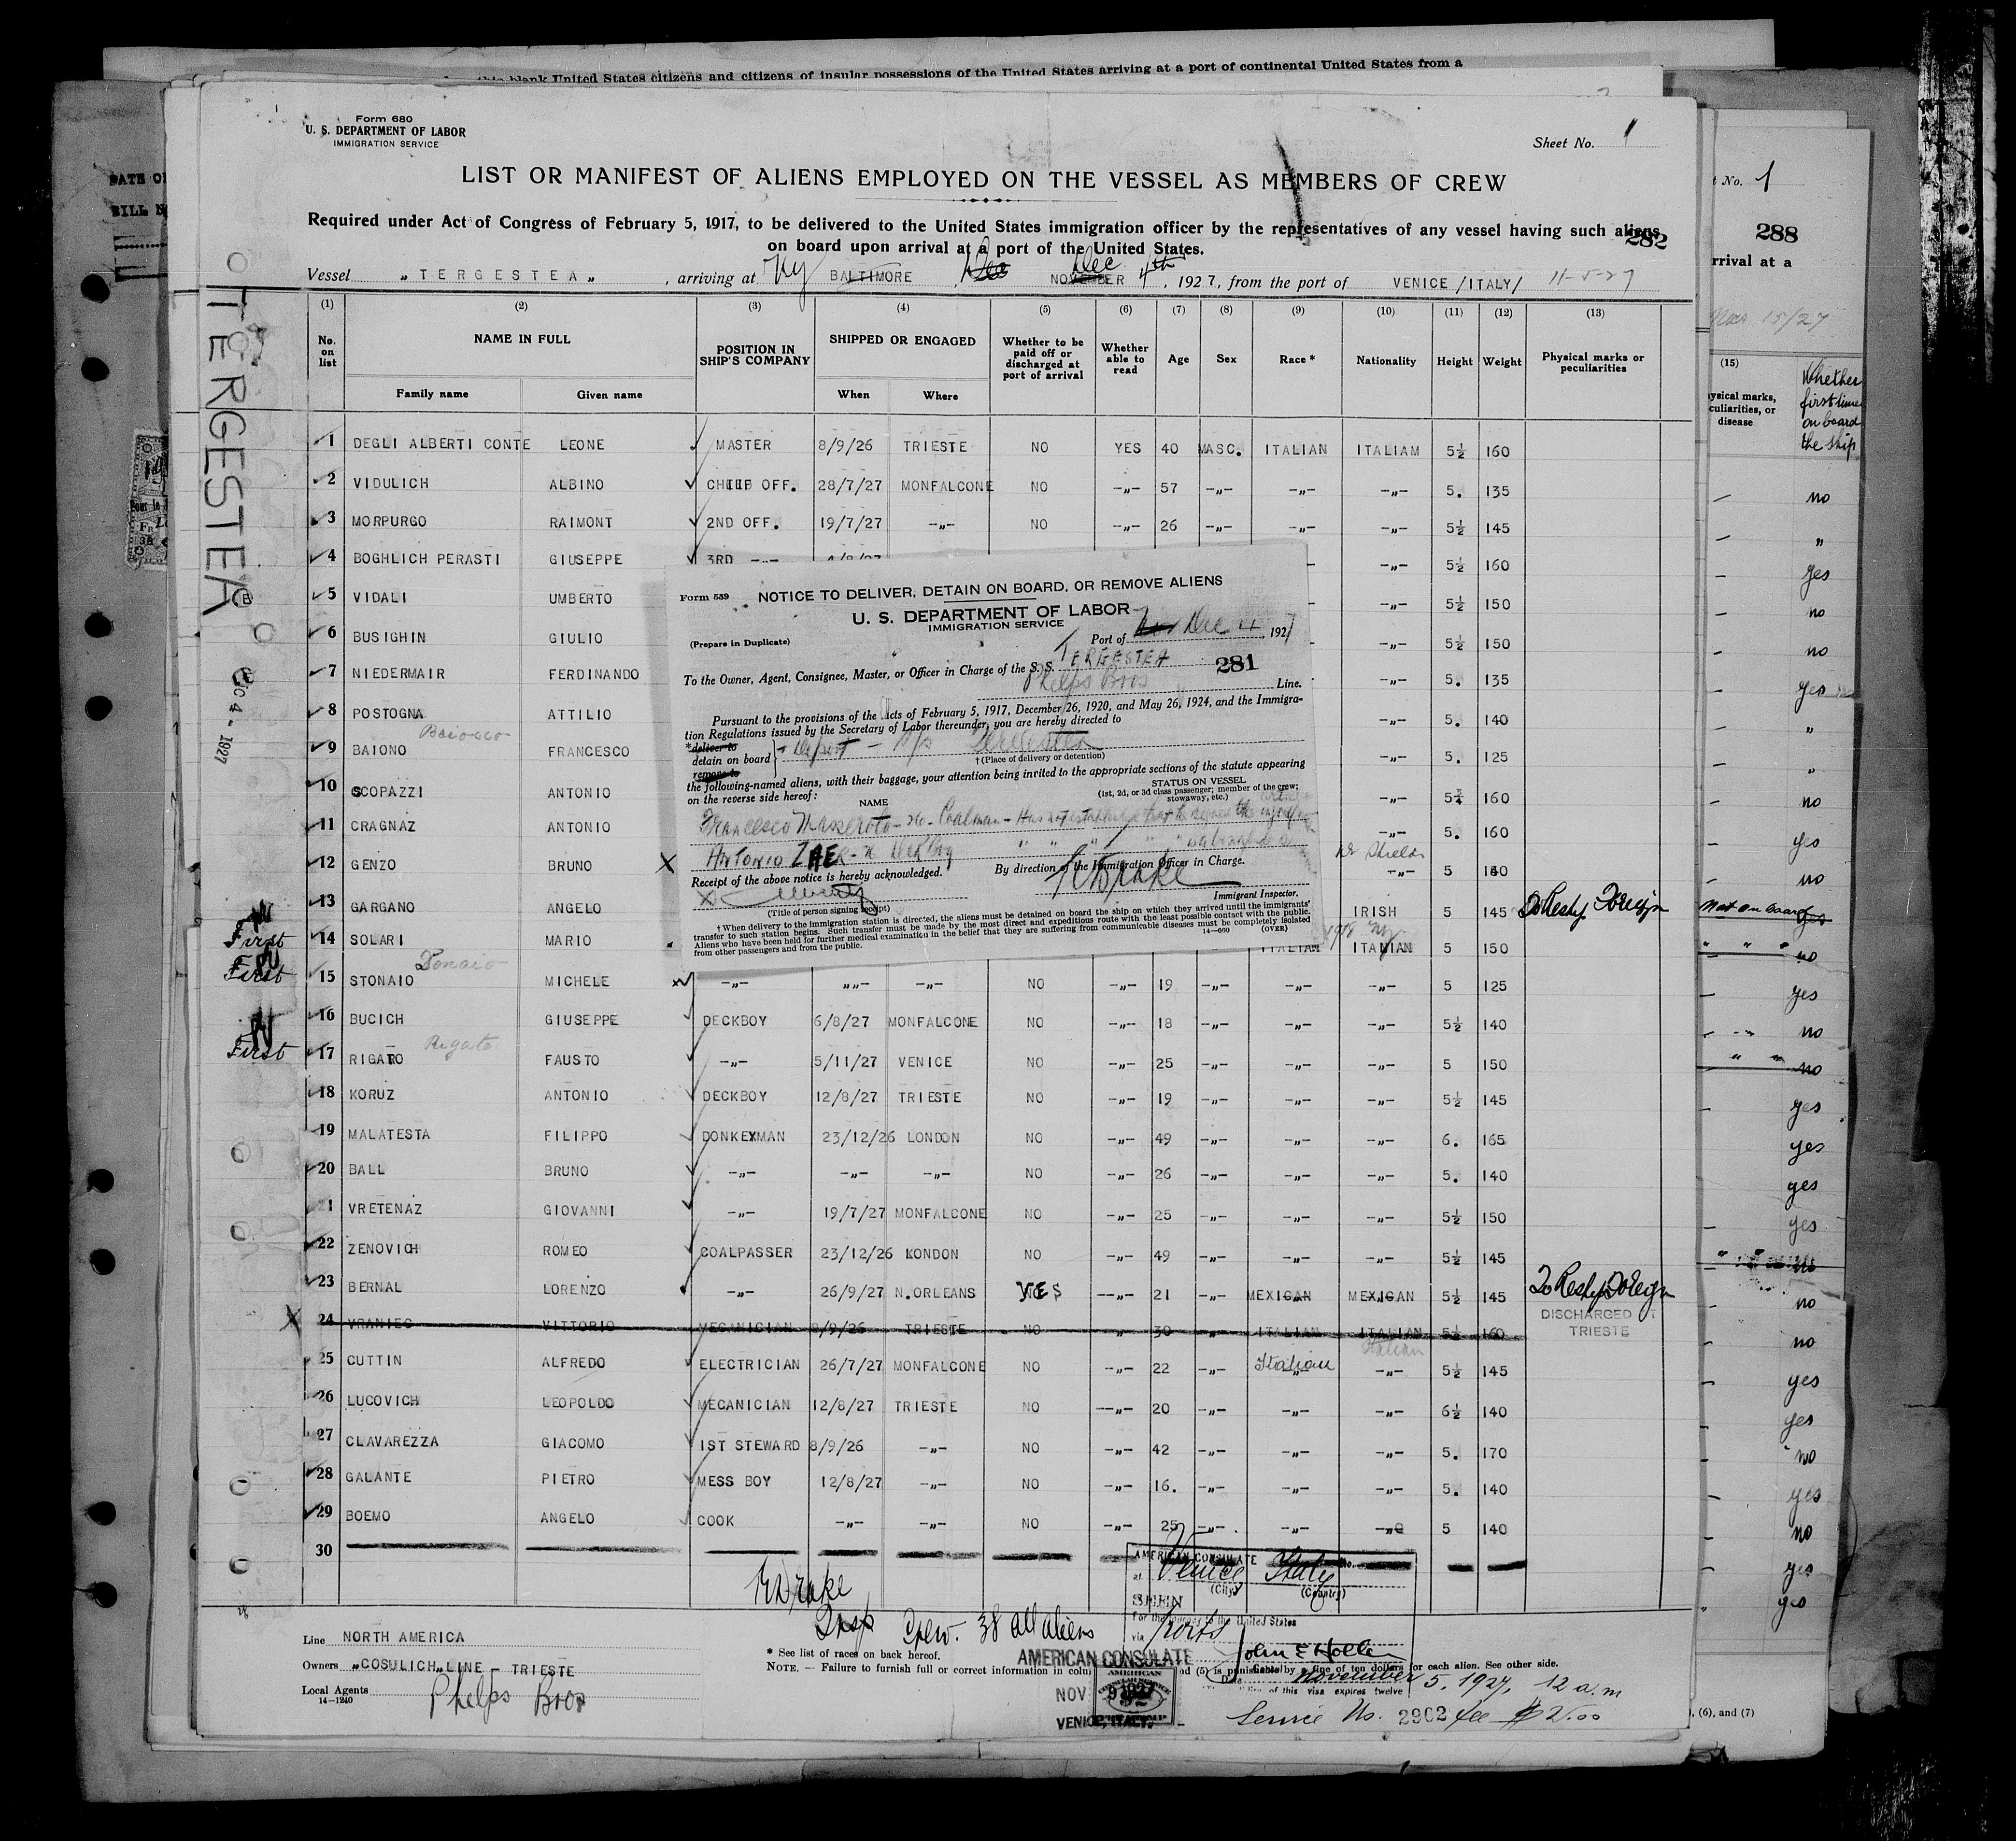 this blank United States citizens and citizens of insular possessions of the United States arriving at a port of continental United States from a
Form 680
U. S. DEPARTMENT OF LABOR
IMMIGRATION SERVICE
Sheet No. 1
LIST OR MANIFEST OF ALIENS EMPLOYED ON THE VESSEL AS MEMBERS OF CREW
Required under Act of Congress of February 5, 1917, to be delivered to the United States immigration officer by the representatives of any vessel having such aliens
on board upon arrival at a port of the United States.
282
Vessel „ TERGESTEA „ , arriving at Ny BALTIMORE , NOVEMBER Dec 4th , 1927, from the port of VENICE /ITALY/ 11-5-27
(1) (2) (3) (4) (5) (6) (7) (8) (9) (10) (11) (12) (13)
No. on list NAME IN FULL POSITION IN SHIP'S COMPANY SHIPPED OR ENGAGED Whether to be paid off or discharged at port of arrival Whether able to read Age Sex Race * Nationality Height Weight Physical marks or peculiarities
Family name Given name When Where
1 DEGLI ALBERTI CONTE LEONE MASTER 8/9/26 TRIESTE NO YES 40 MASC. ITALIAN ITALIAM 5½ 160
2 VIDULICH ALBINO OFF. 28/7/27 MONFALCONE NO -„- 57 -„- -„- -„- 5. 135
3 MORPURGO RAIMONT 2ND OFF. 19/7/27 -„- NO -„- 26 -„- -„- -„- 5½ 145
4 BOGHLICH PERASTI GIUSEPPE 3RD -„- -„- 5½ 160
5 VIDALI UMBERTO -„- 5½ 150
6 BUSIGHIN GIULIO -„- 5½ 150
7 NIEDERMAIR FERDINANDO -„- 5. 135
8 POSTOGNA ATTILIO -„- 5. 140
9 BAIONO FRANCESCO -„- 5. 125
10 SCOPAZZI ANTONIO -„- 160
11 CRAGNAZ ANTONIO -„- 5. 160
12 GENZO BRUNO X -„- 5 140
13 GARGANO ANGELO IRISH 5 145 To Reship Foreign
First 14 SOLARI MARIO ITALIAN ITALIAN 5 150
First 15 STONAIO Donaio MICHELE -„- „„- -„- NO -„- 19 -„- -„- -„- 5 125
16 BUCICH GIUSEPPE DECKBOY 6/8/27 MONFALCONE NO -„- 18 -„- -„- -„- 5½ 140
First 17 RIGATO Rigato FAUSTO -„- 5/11/27 VENICE NO -„- 25 -„- -„- -„- 5 150
18 KORUZ ANTONIO DECKBOY 12/8/27 TRIESTE NO -„- 19 -„- -„- -„- 5½ 145
19 MALATESTA FILIPPO DONKEYMAN 23/12/26 LONDON NO -„- 49 -„- -„- -„- 6. 165
20 BALL BRUNO -„- -„- -„- NO -„- 26 -„- -„- -„- 5. 140
21 VRETENAZ GIOVANNI -„- 19/7/27 MONFALCONE NO -„- 25 -„- -„- -„- 5½ 150
22 ZENOVICH ROMEO COALPASSER 23/12/26 LONDON NO -„- 49 -„- -„- -„- 5½ 145
23 BERNAL LORENZO -„- 26/9/27 N.ORLEANS YES -„- 21 -„- MEXICAN MEXICAN 5½ 145 To Reship Foreign
X 24 VRANIEC VITTORIO MECANICIAN 8/9/26 TRIESTE NO „ 30 „ ITALIAN ITALIAN 5½ 160 DISCHARGED AT TRIESTE
25 CUTTIN ALFREDO ELECTRICIAN 26/7/27 MONFALCONE NO -„- 22 -„- Italian Italian -„- 5½ 145
26 LUCOVICH LEOPOLDO MECANICIAN 12/8/27 TRIESTE NO -„- 20 -„- -„- -„- 6½ 140
27 CLAVAREZZA GIACOMO 1ST STEWARD 8/9/26 -„- NO -„- 42 -„- -„- -„- 5. 170
28 GALANTE PIETRO MESS BOY 12/8/27 -„- NO -„- 16. -„- -„- -„- 5. 140
29 BOEMO ANGELO COOK -„- -„- NO -„- 25 -„- -„- -„- 5 140
30
Form 559
NOTICE TO DELIVER, DETAIN ON BOARD, OR REMOVE ALIENS
U. S. DEPARTMENT OF LABOR
IMMIGRATION SERVICE
(Prepare in Duplicate)
Port of Dec 4, 1927
To the Owner, Agent, Consignee, Master, or Officer in Charge of the S. S. TERGESTEA 281
Phelps Bros Line.
Pursuant to the provisions of the Acts of February 5, 1917, December 26, 1920, and May 26, 1924, and the Immigra-
tion Regulations issued by the Secretary of Labor thereunder, you are hereby directed to
*deliver to
detain on board
remove to
† (Place of delivery or detention)
the following-named aliens, with their baggage, your attention being invited to the appropriate sections of the statute appearing
on the reverse side hereof:
NAME
STATUS ON VESSEL
(1st, 2d, or 3d class passenger; member of the crew; stowaway, etc.)
Francesco Masseroto - Coalman
Antonio
Receipt of the above notice is hereby acknowledged.
By direction of the Immigration Officer in Charge.
Drake
Immigrant Inspector.
(Title of person signing receipt)
† When delivery to the immigration station is directed, the aliens must be detained on board the ship on which they arrived until the immigrants'
transfer to such station begins. Such transfer must be made by the most direct and expeditious route with the least possible contact with the public.
Aliens who have been held for further medical examination in the belief that they are suffering from communicable diseases must be completely isolated
from other passengers and from the public.
14-600 (OVER)
Drake
Insp Crew. 38 all aliens
Line NORTH AMERICA
Owners „COSULICH„LINE - TRIESTE
Local Agents Phelps Bros
14-1240
* See list of races on back hereof.
NOTE. — Failure to furnish full or correct information in columns (5) is punishable by a fine of ten dollars for each alien. See other side.
AMERICAN CONSULATE
at Venice Italy
(City) (Country)
SEEN
For the journey to the United States
via Ports
November 5, 1927, 12 a.m
of this visa expires twelve
Service No. 2902 fee $2.00
AMERICAN CONSULATE
NOV
VENICE, ITALY.
TERGESTEA
DEC 4 - 1927
DATE OF
BILL
t No. 1
288
rrival at a
Nov 15/27
(15)
ysical marks, culiarities, or disease
Whether first time on board the ship
no
„
yes
no
no
yes
„
„
no
yes
no
Not on board yes
no
yes
no
no
yes
yes
yes
yes
no
no
no
yes
yes
no
yes
no
yes
yes
, (6), and (7)